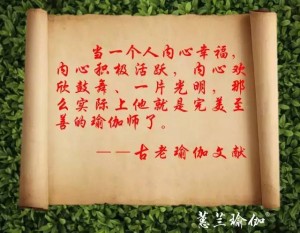 当一个人内心幸福，
内心积极活跃，内心欢
欣鼓舞、一片光明，那
么实际上他就是完美至
善的瑜伽师了。
——古老瑜伽文献
蕙兰瑜伽